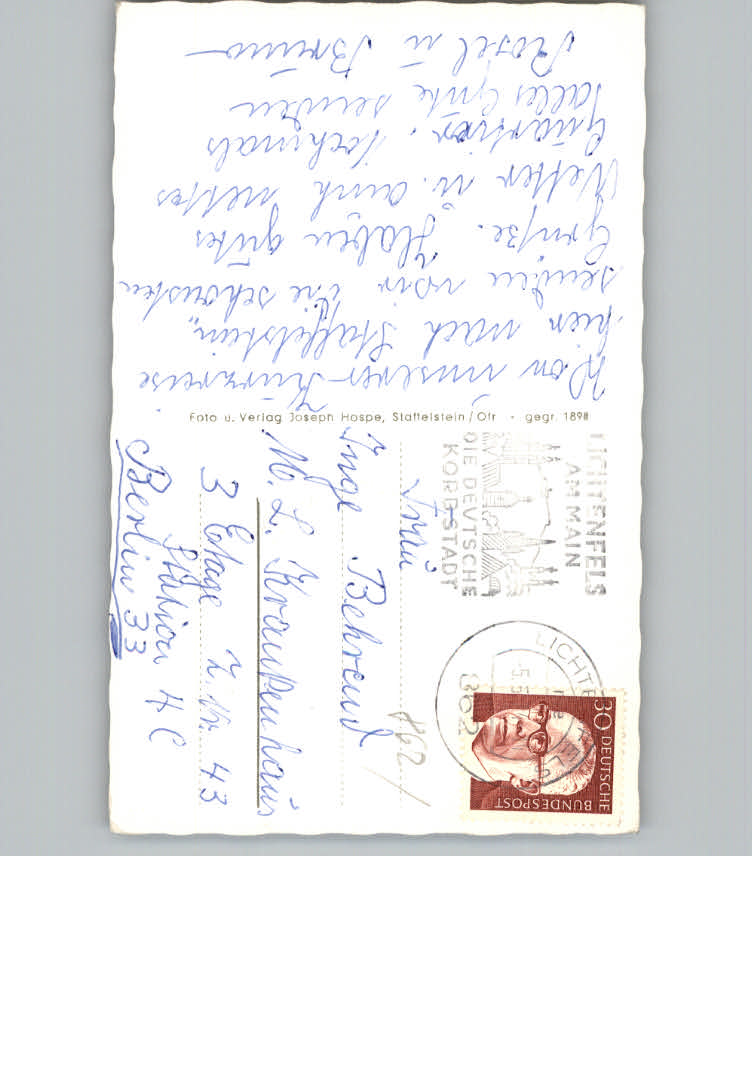 Von unserer Kurzreise
hier nach Staffelstein,
senden wir die schönsten
Grüße. Haben gutes
Wetter u. auch nettes
Quartier. Nochmals
alles Gute senden
Rosel u Bruno
Foto u. Verlag Joseph Hospe, Staffelstein/Ofr - gegr. 1898
LICHTENFELS
AM MAIN
DIE DEUTSCHE
KORBSTADT
LICHTENFELS
862
30 DEUTSCHE
BUNDESPOST
Frau
Inge Behrend
M. L. Krankenhaus
3 Etage Z. Nr. 43
Station 4C
Berlin 33
862/